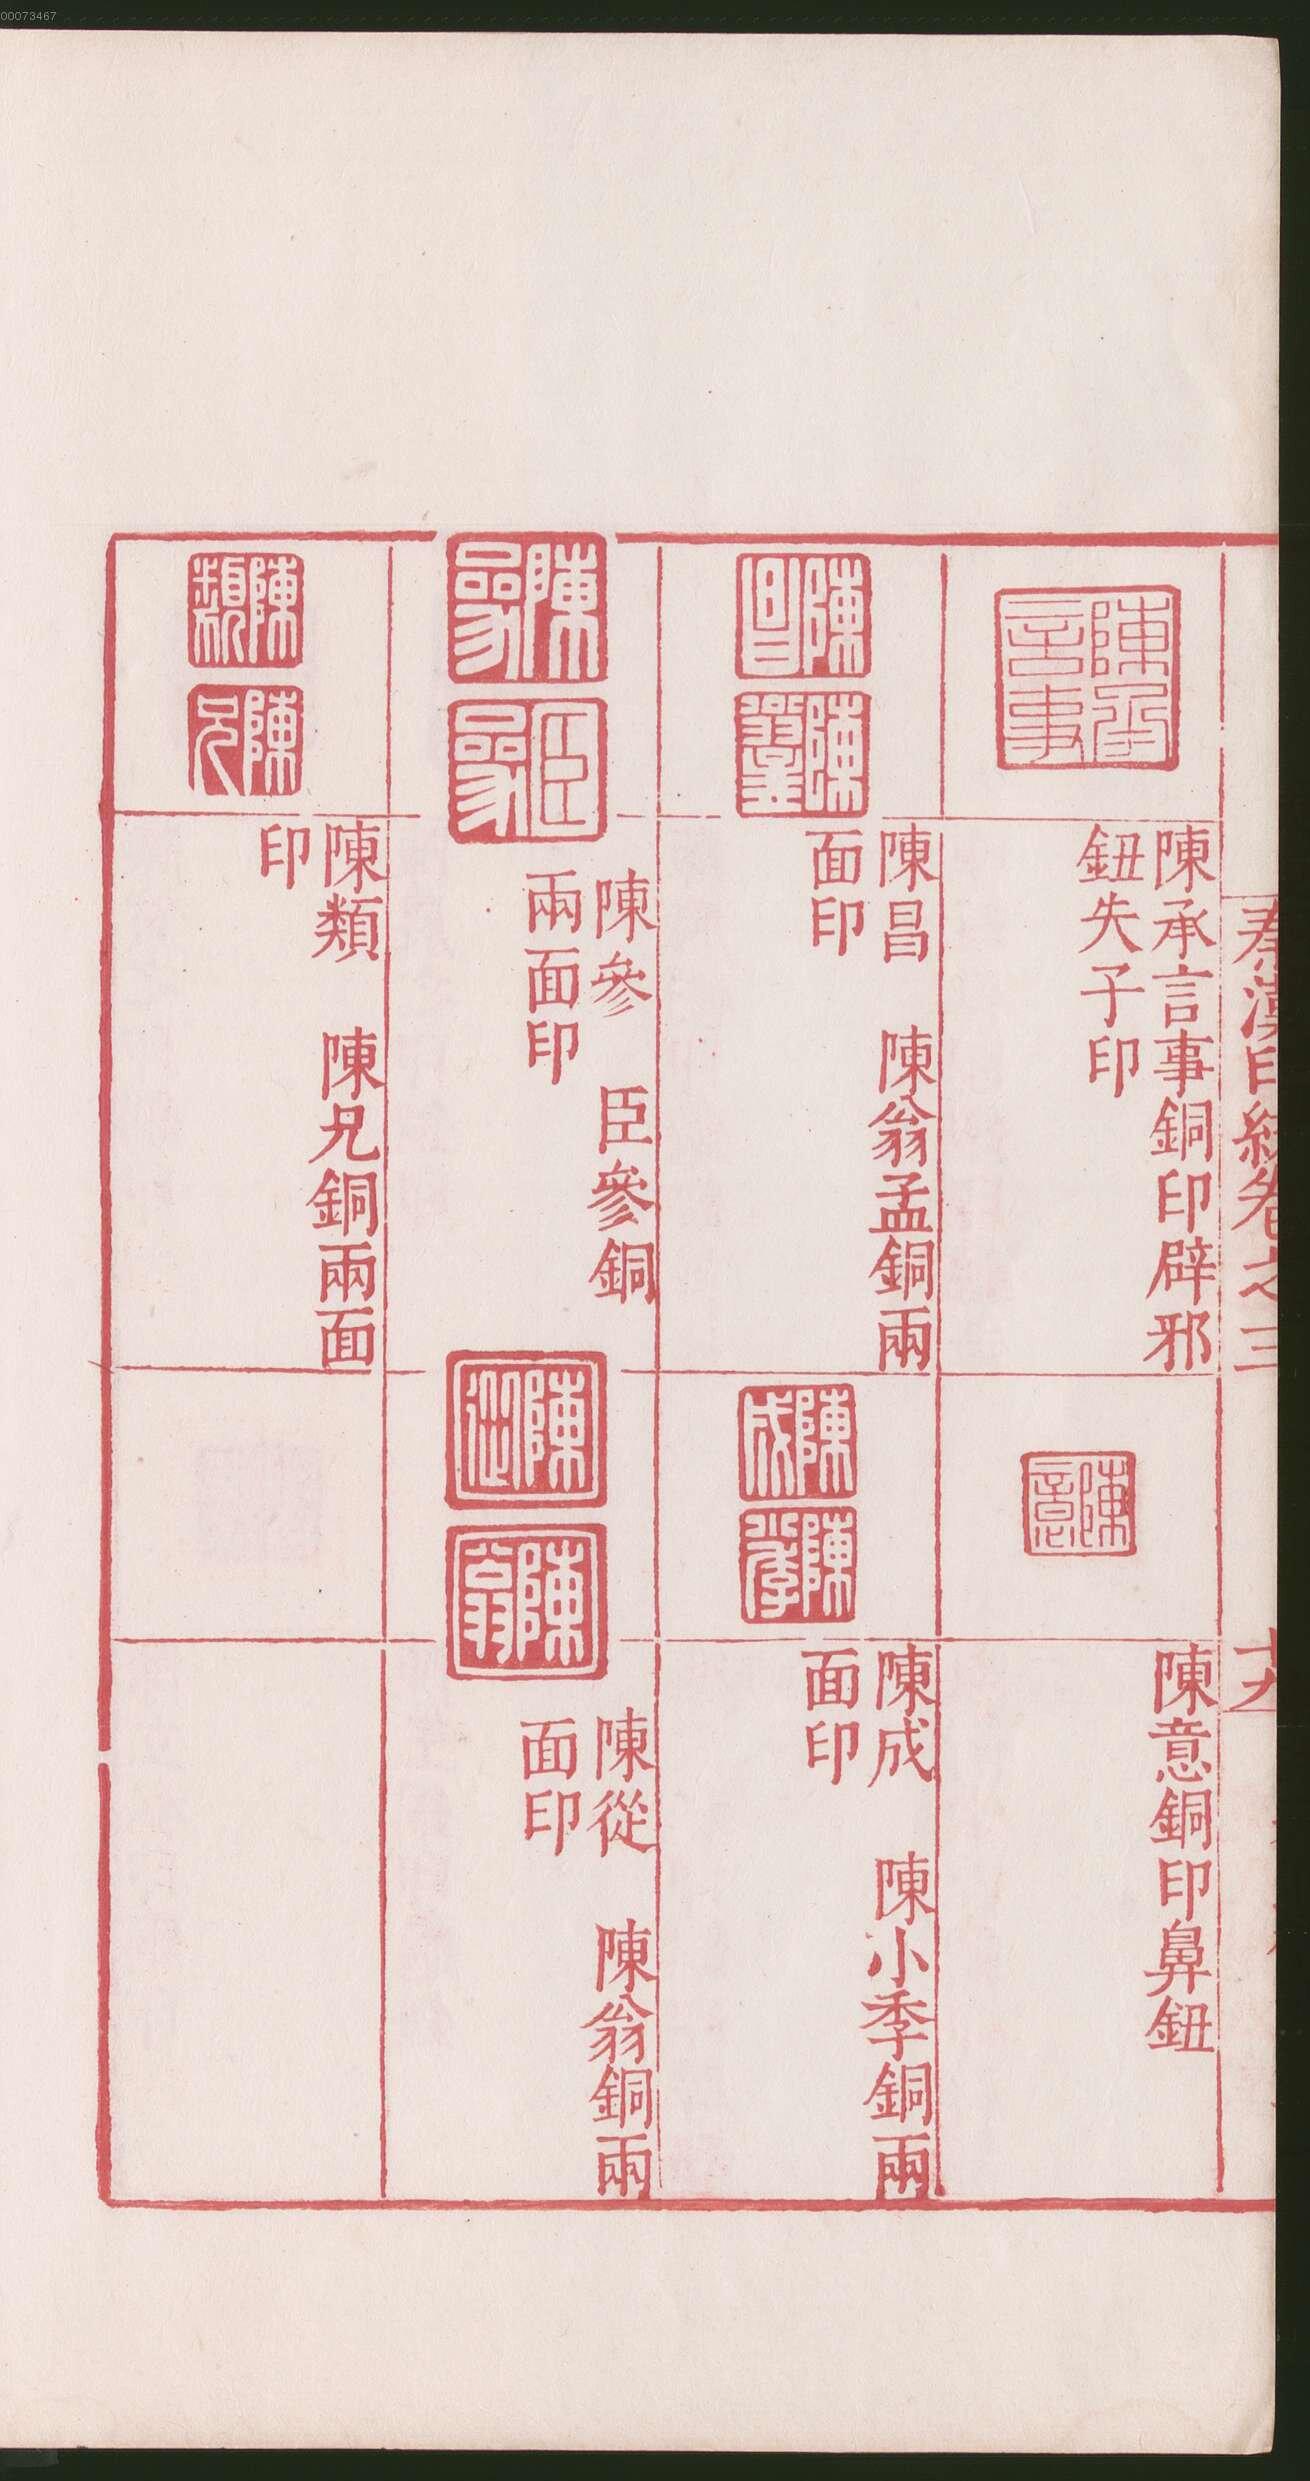 00073467
秦漢印統卷之三
十九
陳承言事
陳承言事銅印辟邪
鈕失子印
陳意
陳意銅印鼻鈕
陳昌
陳翁孟
陳昌 陳翁孟銅兩
面印
陳成
陳小季
陳成 陳小季銅兩
面印
陳參
臣參
陳參 臣參銅
兩面印
陳從
陳翁
陳從 陳翁銅兩
面印
陳類
陳兄
陳類 陳兄銅兩面
印